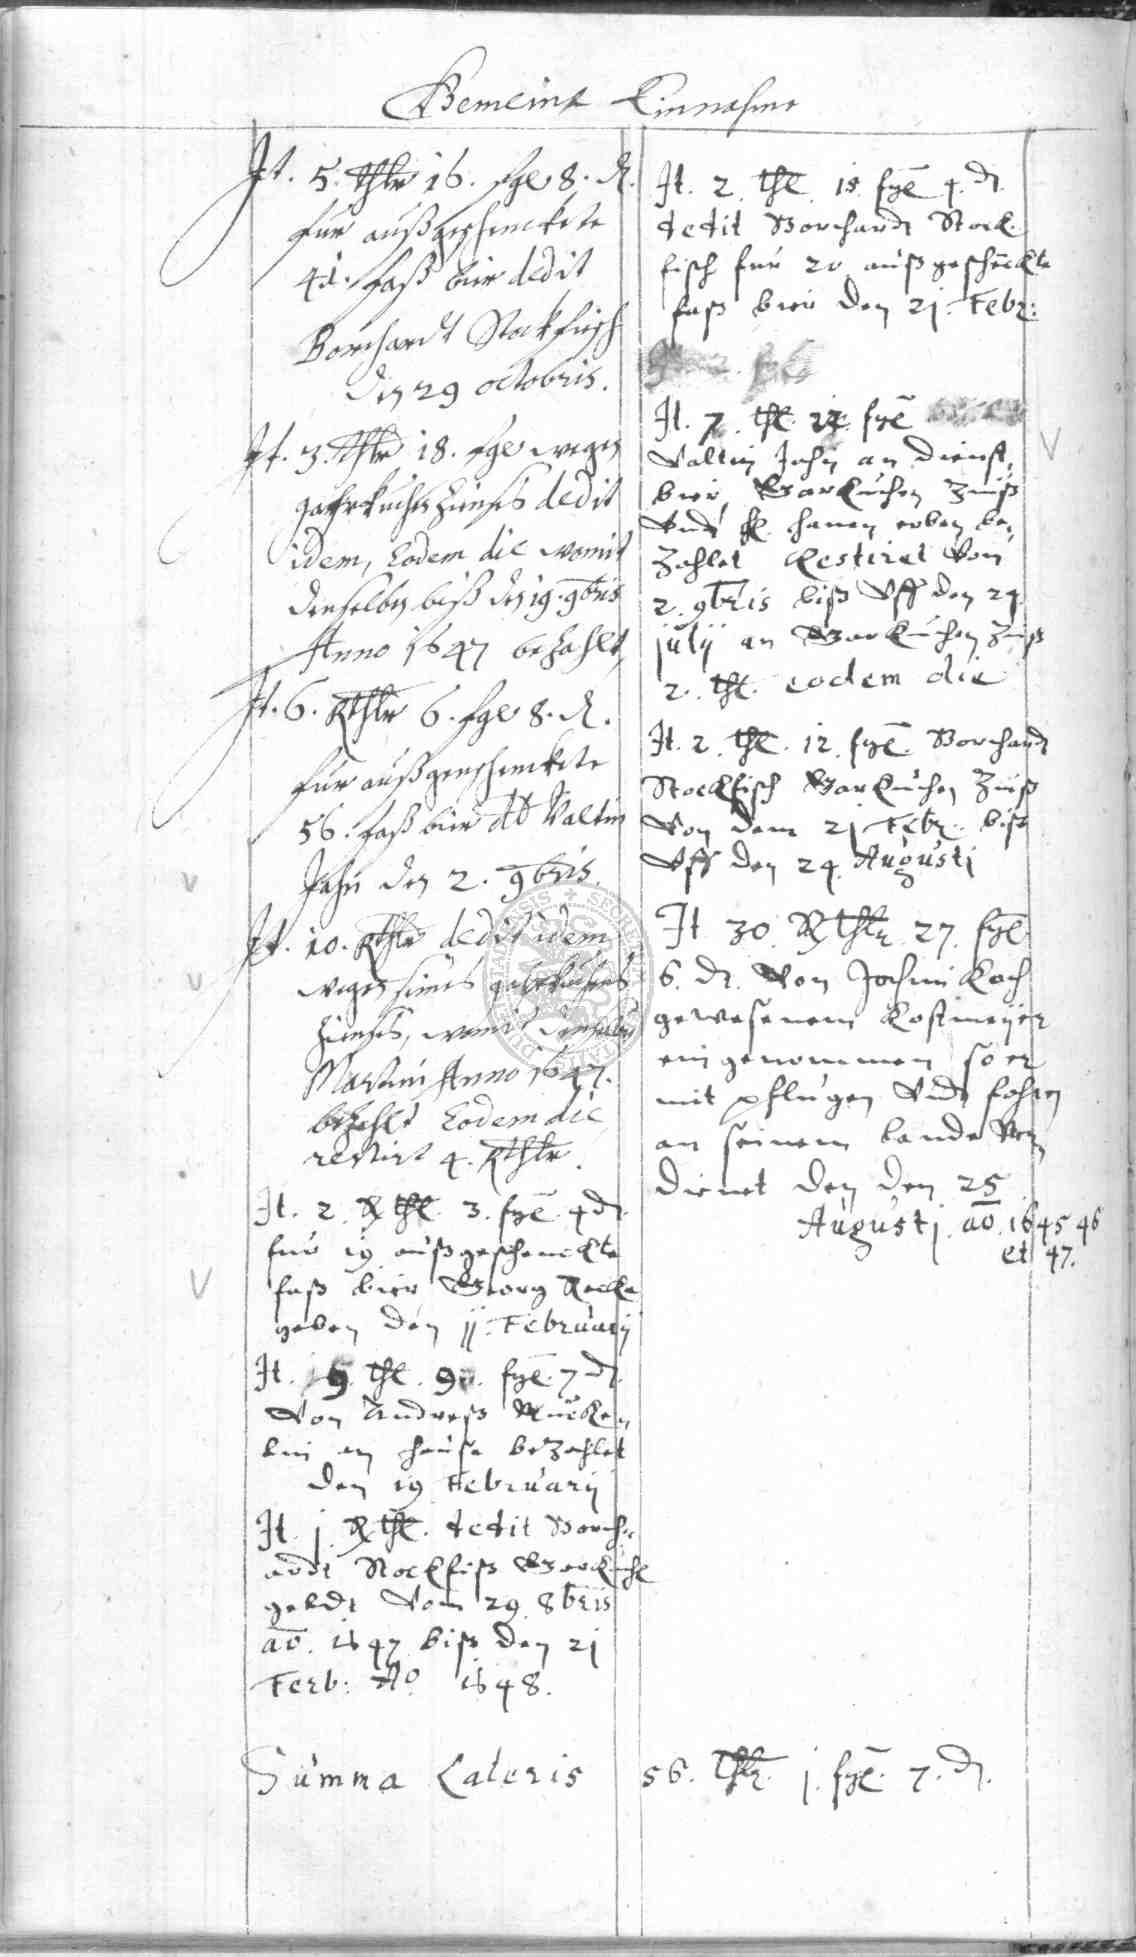 Gemeine Einnahme
It. 5. thlr 16. sgl 8. d.
für außgeschenckete
41. faß bier dedit
Borchardt Stockfisch
den 29 octobris.
It. 3. thlr 18. sgl wegen
garkuchen Zinses dedit
idem, Eodem die womit
denselben biß den 19. 9bris
Anno 1647 bezahlt,
It. 6. Rthlr 6. sgl 8. d.
für außgeschenckete
56. faß bier dt Valtin
Jahn den 2. 9bris.
It. 10. Rthlr dedit idem
wegen seines garkuchens
Zinses, womit denselben
Martini Anno 1647.
bezahlt Eodem die
restirt 4. Rthlr.
It. 2. Rthl. 3. sgl. 4 d.
fur 19 außgeschenckte
faß bier Georg Recke
geben den jj. Februarij
It. 9. thl. 9. sgl. 7 d.
Von Andreß
an hause bezahlet
den 19 Februarij
It. j Rthl. dedit Borch-
ardt Stockfiß Garkuch
geldt Vom 29. 8bris
ao. 1647 biß den 2j
Ferb: Ao 1648.
It. 2. thl. 18 sgl 4. d.
dedit Borchardt Stock-
fisch fur 20 außgeschenckte
faß bier den 2j. Febr:
It. 7. thl. sgl
Valtin Jahn an dienst,
bier, Garkuchen Zinß
Undt hauen erben be-
zahlet Restiret Von
2. 9bris biß Uff den 24
julij an Garkuchen Zinß
2. thl. eodem die
It. 2. thl. 12. sgl. Borchardt
Stockfisch Garkuchen Zinß
Von dem 2j Febr. biß
Uff den 24. Augustj
It 30. Rthlr. 27. sgl
6. d. Von Jochim Koch
gewesenem Kostmeijer
eingenommen so er
mit pflugen Undt fohren
an seinem lande Ver-
dienet den den 25
Augustj. ao. 1645 46
et 47.
Summa Lateris 56. thlr. j. sgl. 7. d.